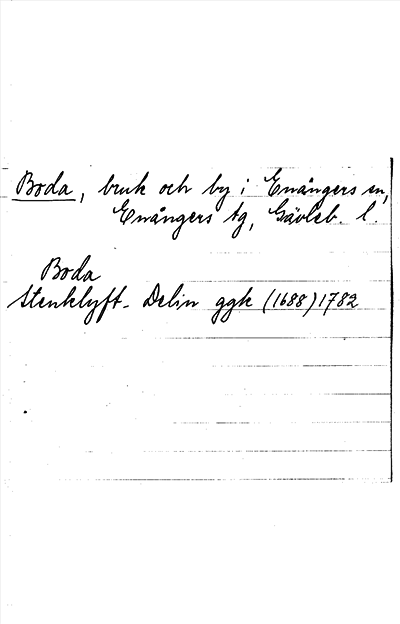 Boda, bruk och by i Enångers sn,
Enångers tg, Gävleb. l.
Boda
Stenklyft- Delin ggk (1688) 1782